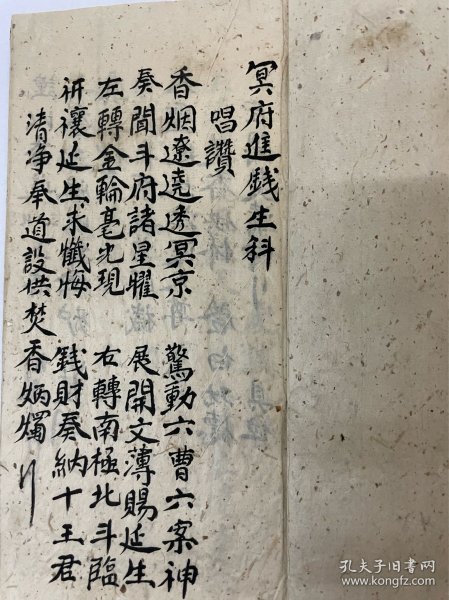 冥府進錢生科
唱讚
香烟遼遶透冥京 驚動六曹六案神
奏聞斗府諸星曜 展開文薄賜延生
左轉金輪毫光現 右轉南極北斗臨
祈禳延生求懺悔 錢財奏納十王君
清净奉道設供焚香炳燭
孔夫子旧书网